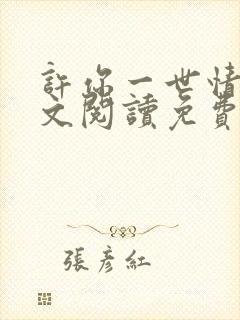 許你一世情
文閱讀免費
張彥紅